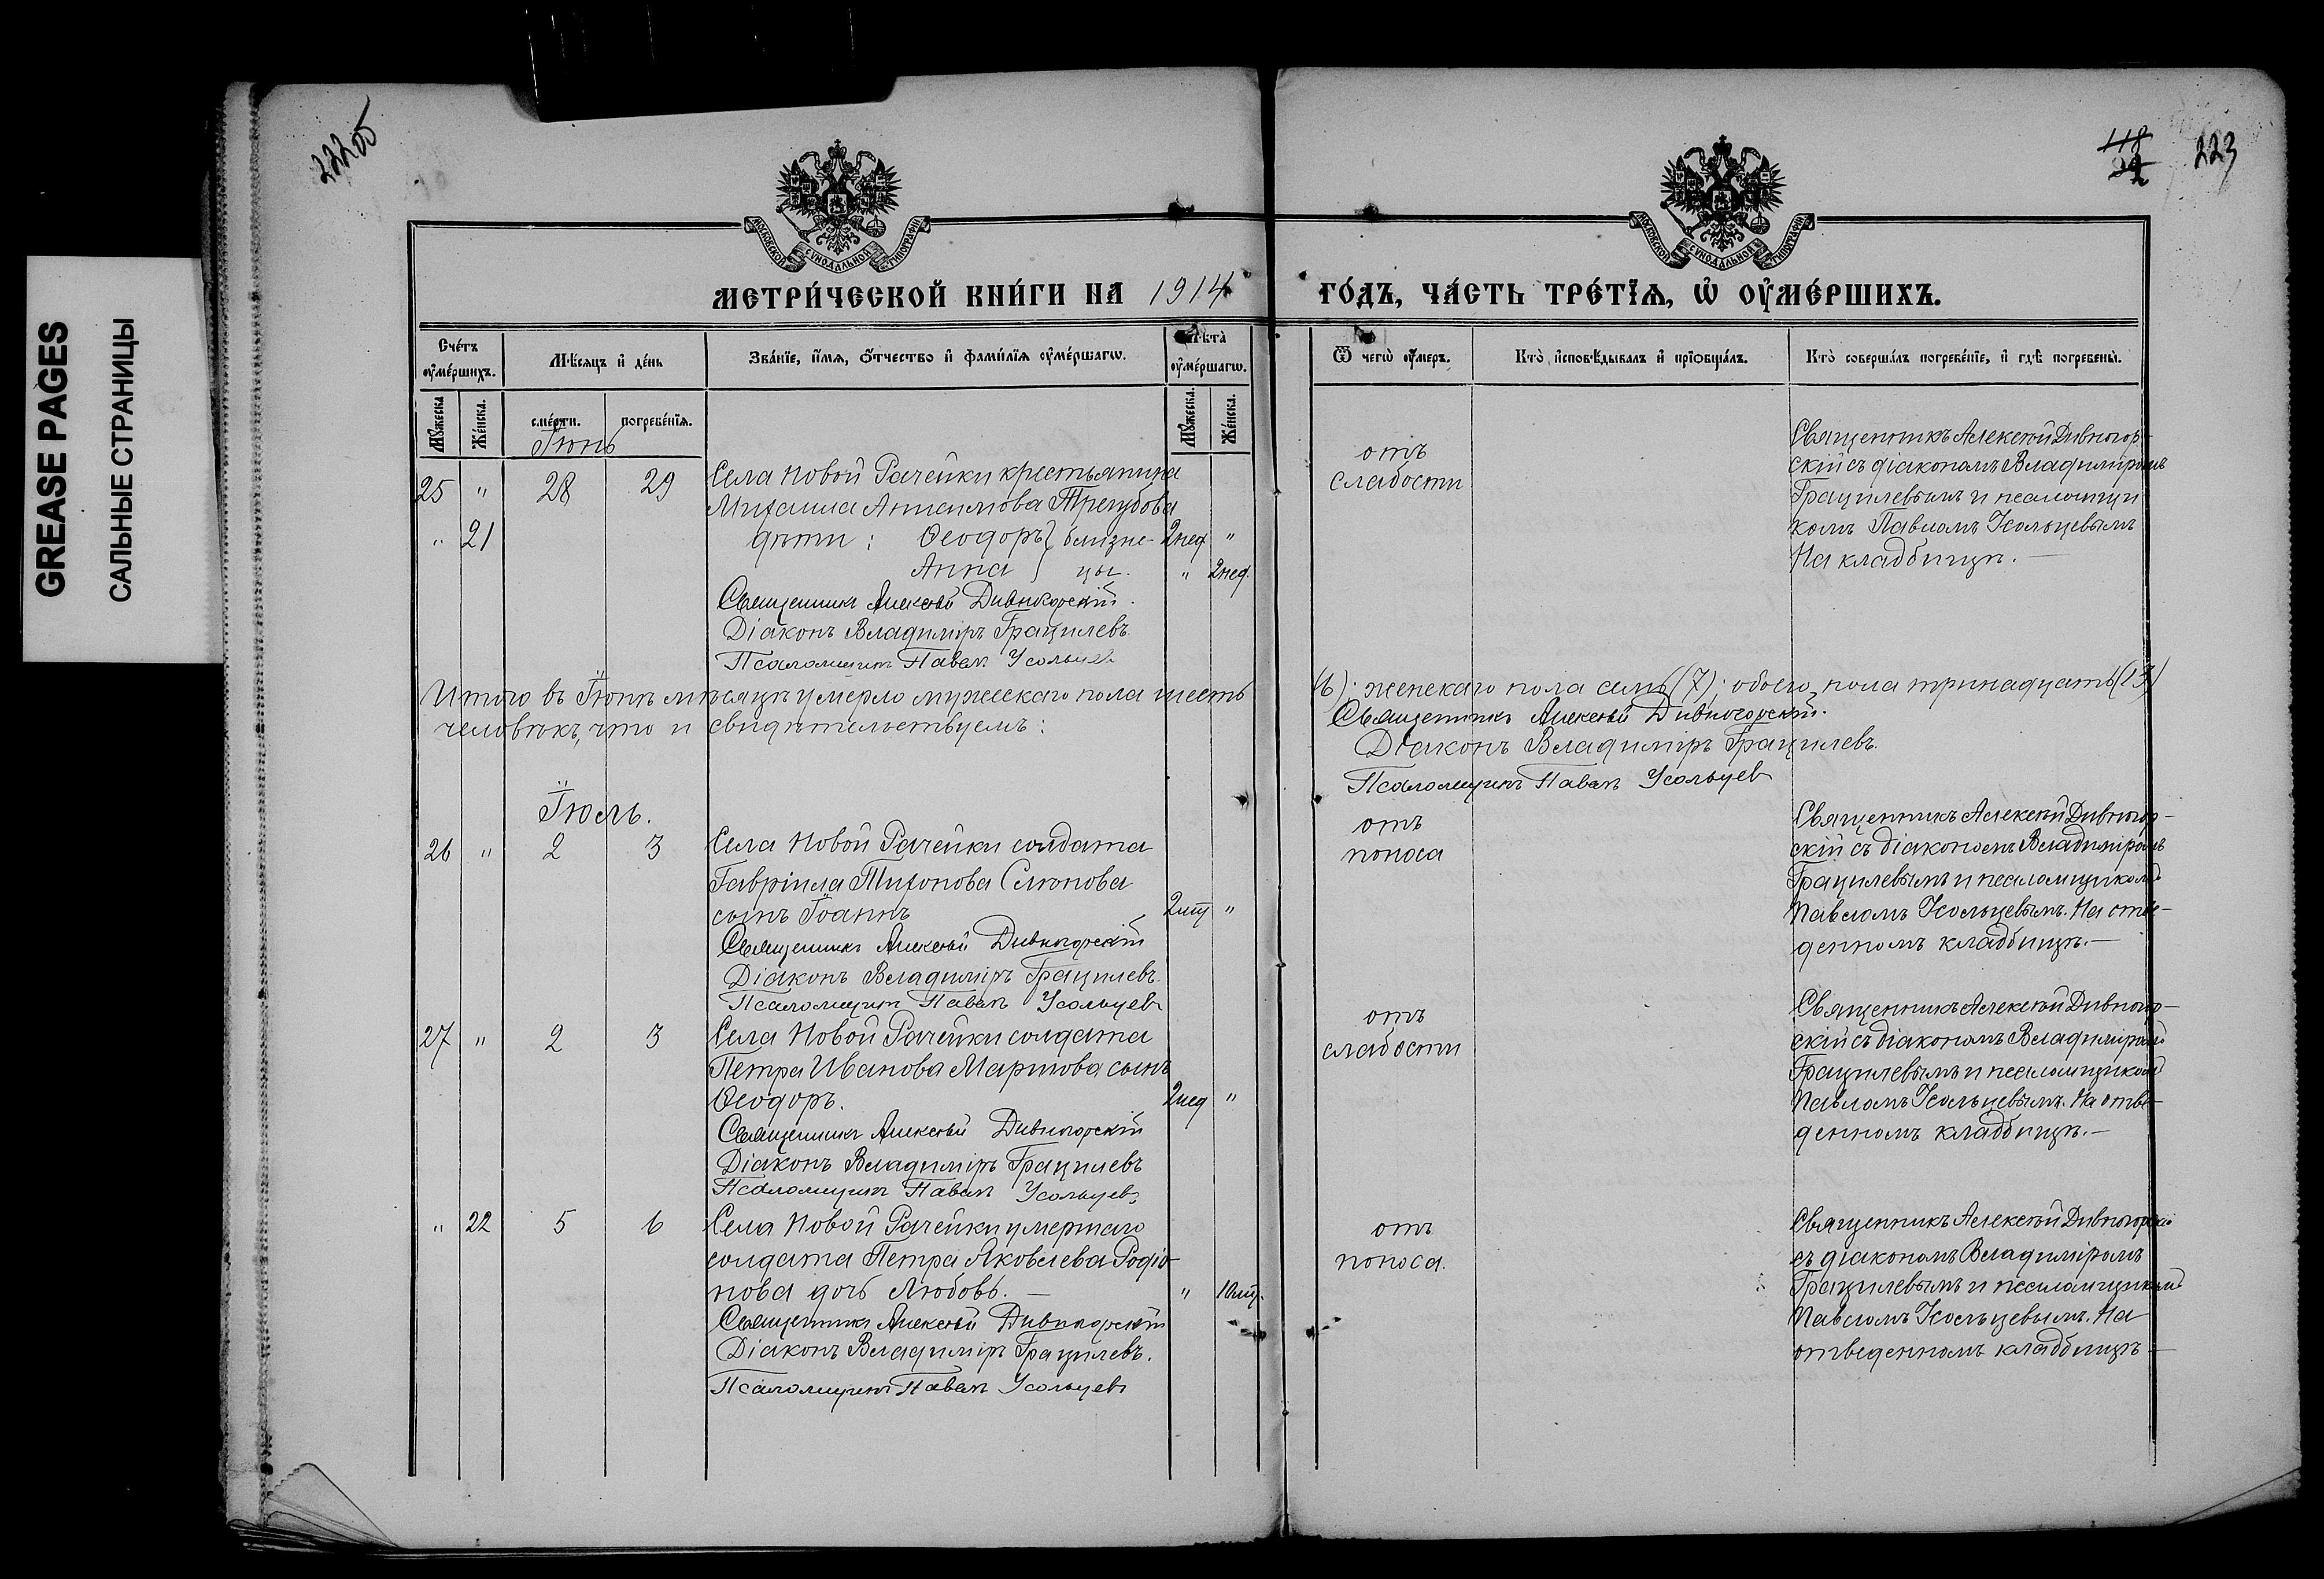 GREASE PAGES
САЛЬНЫЕ СТРАНИЦЫ
222об
118
223
МОСКОВСКОЙ СУНОДАЛЬНОЙ ТИПОГРАФІИ
МОСКОВСКОЙ СУНОДАЛЬНОЙ ТИПОГРАФІИ
МЕТРИ́ЧЕСКОЙ КНИ́ГИ НА 1914 ГО́ДЪ, ЧА́СТЬ ТРЕ́ТЇѦ, Ѡ҆ ОУ҆МЕ́РШИХЪ.
Сче́тъ оу҆ме́ршихъ.
Мѣ́сѧцъ и҆ де́нь
Зва́нїе, и҆́мѧ, ѻ҆́тчество и҆ фами́лїѧ оу҆ме́ршагѡ.
Лѣ́та оу҆ме́ршагѡ.
Ѿ чегѡ̀ оу҆́меръ.
Кто̀ и҆сповѣ́дывалъ и҆ прїѡбща́лъ.
Кто̀ соверша́лъ погребе́нїе, и҆ гдѣ̀ погребены̀.
Мꙋ́жеска
Же́нска.
сме́рти.
погребе́нїѧ.
Мꙋ́жеска.
Же́нска.
Іюнь
25 " 28 29 Села Новой Рачейки крестьянина
Михаила Трегубова
" 21 дѣти: Ѳеодоръ} близне- 2 нед "
Анна } цы. " 2 нед.
Священникъ Алексѣй Дивногорскій.
Діаконъ Владиміръ Грацилевъ.
Псаломщикъ Павелъ Усольцевъ
отъ
слабости
Священникъ Алексѣй Дивногор-
скій съ діакономъ Владиміромъ
Грацилевымъ и псаломщи
комъ Павломъ Усольцевымъ
На кладбищѣ. —
Итого въ Іюнѣ мѣсяцѣ умерло мужескаго пола шесть (6); женскаго пола семь (7); обоего пола тринадцать (13)
человѣкъ, что и свидѣтельствуемъ:
Священникъ Алексѣй Дивногорскій.
Діаконъ Владиміръ Грацилевъ.
Псаломщикъ Павелъ Усольцев
Іюль.
26 " 2 3 Села Новой Рачейки солдата
Гавріила Тихонова Слюнова
сынъ Іоаннъ 2 мц "
Священникъ Алексѣй Дивногорскій
Діаконъ Владиміръ Грацилевъ.
Псаломщикъ Павелъ Усольцевъ
отъ
поноса
Священникъ Алексѣй Дивногор-
скій съ діакономъ Владиміромъ
Грацилевымъ и псаломщикомъ
Павломъ Усольцевымъ. На отве-
денномъ кладбищѣ. —
27 " 2 3 Села Новой Рачейки солдата
Петра Иванова Маринова сынъ
Ѳеодоръ. 2 нед "
Священникъ Алексѣй Дивногорскій
Діаконъ Владиміръ Грацилевъ
Псаломщикъ Павелъ Усольцевъ
отъ
слабости
Священникъ Алексѣй Дивногор-
скій съ діакономъ Владиміромъ
Грацилевымъ и псаломщикомъ
Павломъ Усольцевымъ. На отве-
денномъ кладбищѣ. —
" 22 5 6 Села Новой Рачейки умершаго
солдата Петра Яковлева Родіо-
нова дочь Любовь. — " 10 мц.
Священникъ Алексѣй Дивногорскій
Діаконъ Владиміръ Грацилевъ.
Псаломщикъ Павелъ Усольцевъ
отъ
поноса.
Священникъ Алексѣй Дивногорскій
съ діакономъ Владиміромъ
Грацилевымъ и псаломщикомъ
Павломъ Усольцевымъ. На
отведенномъ кладбищѣ —